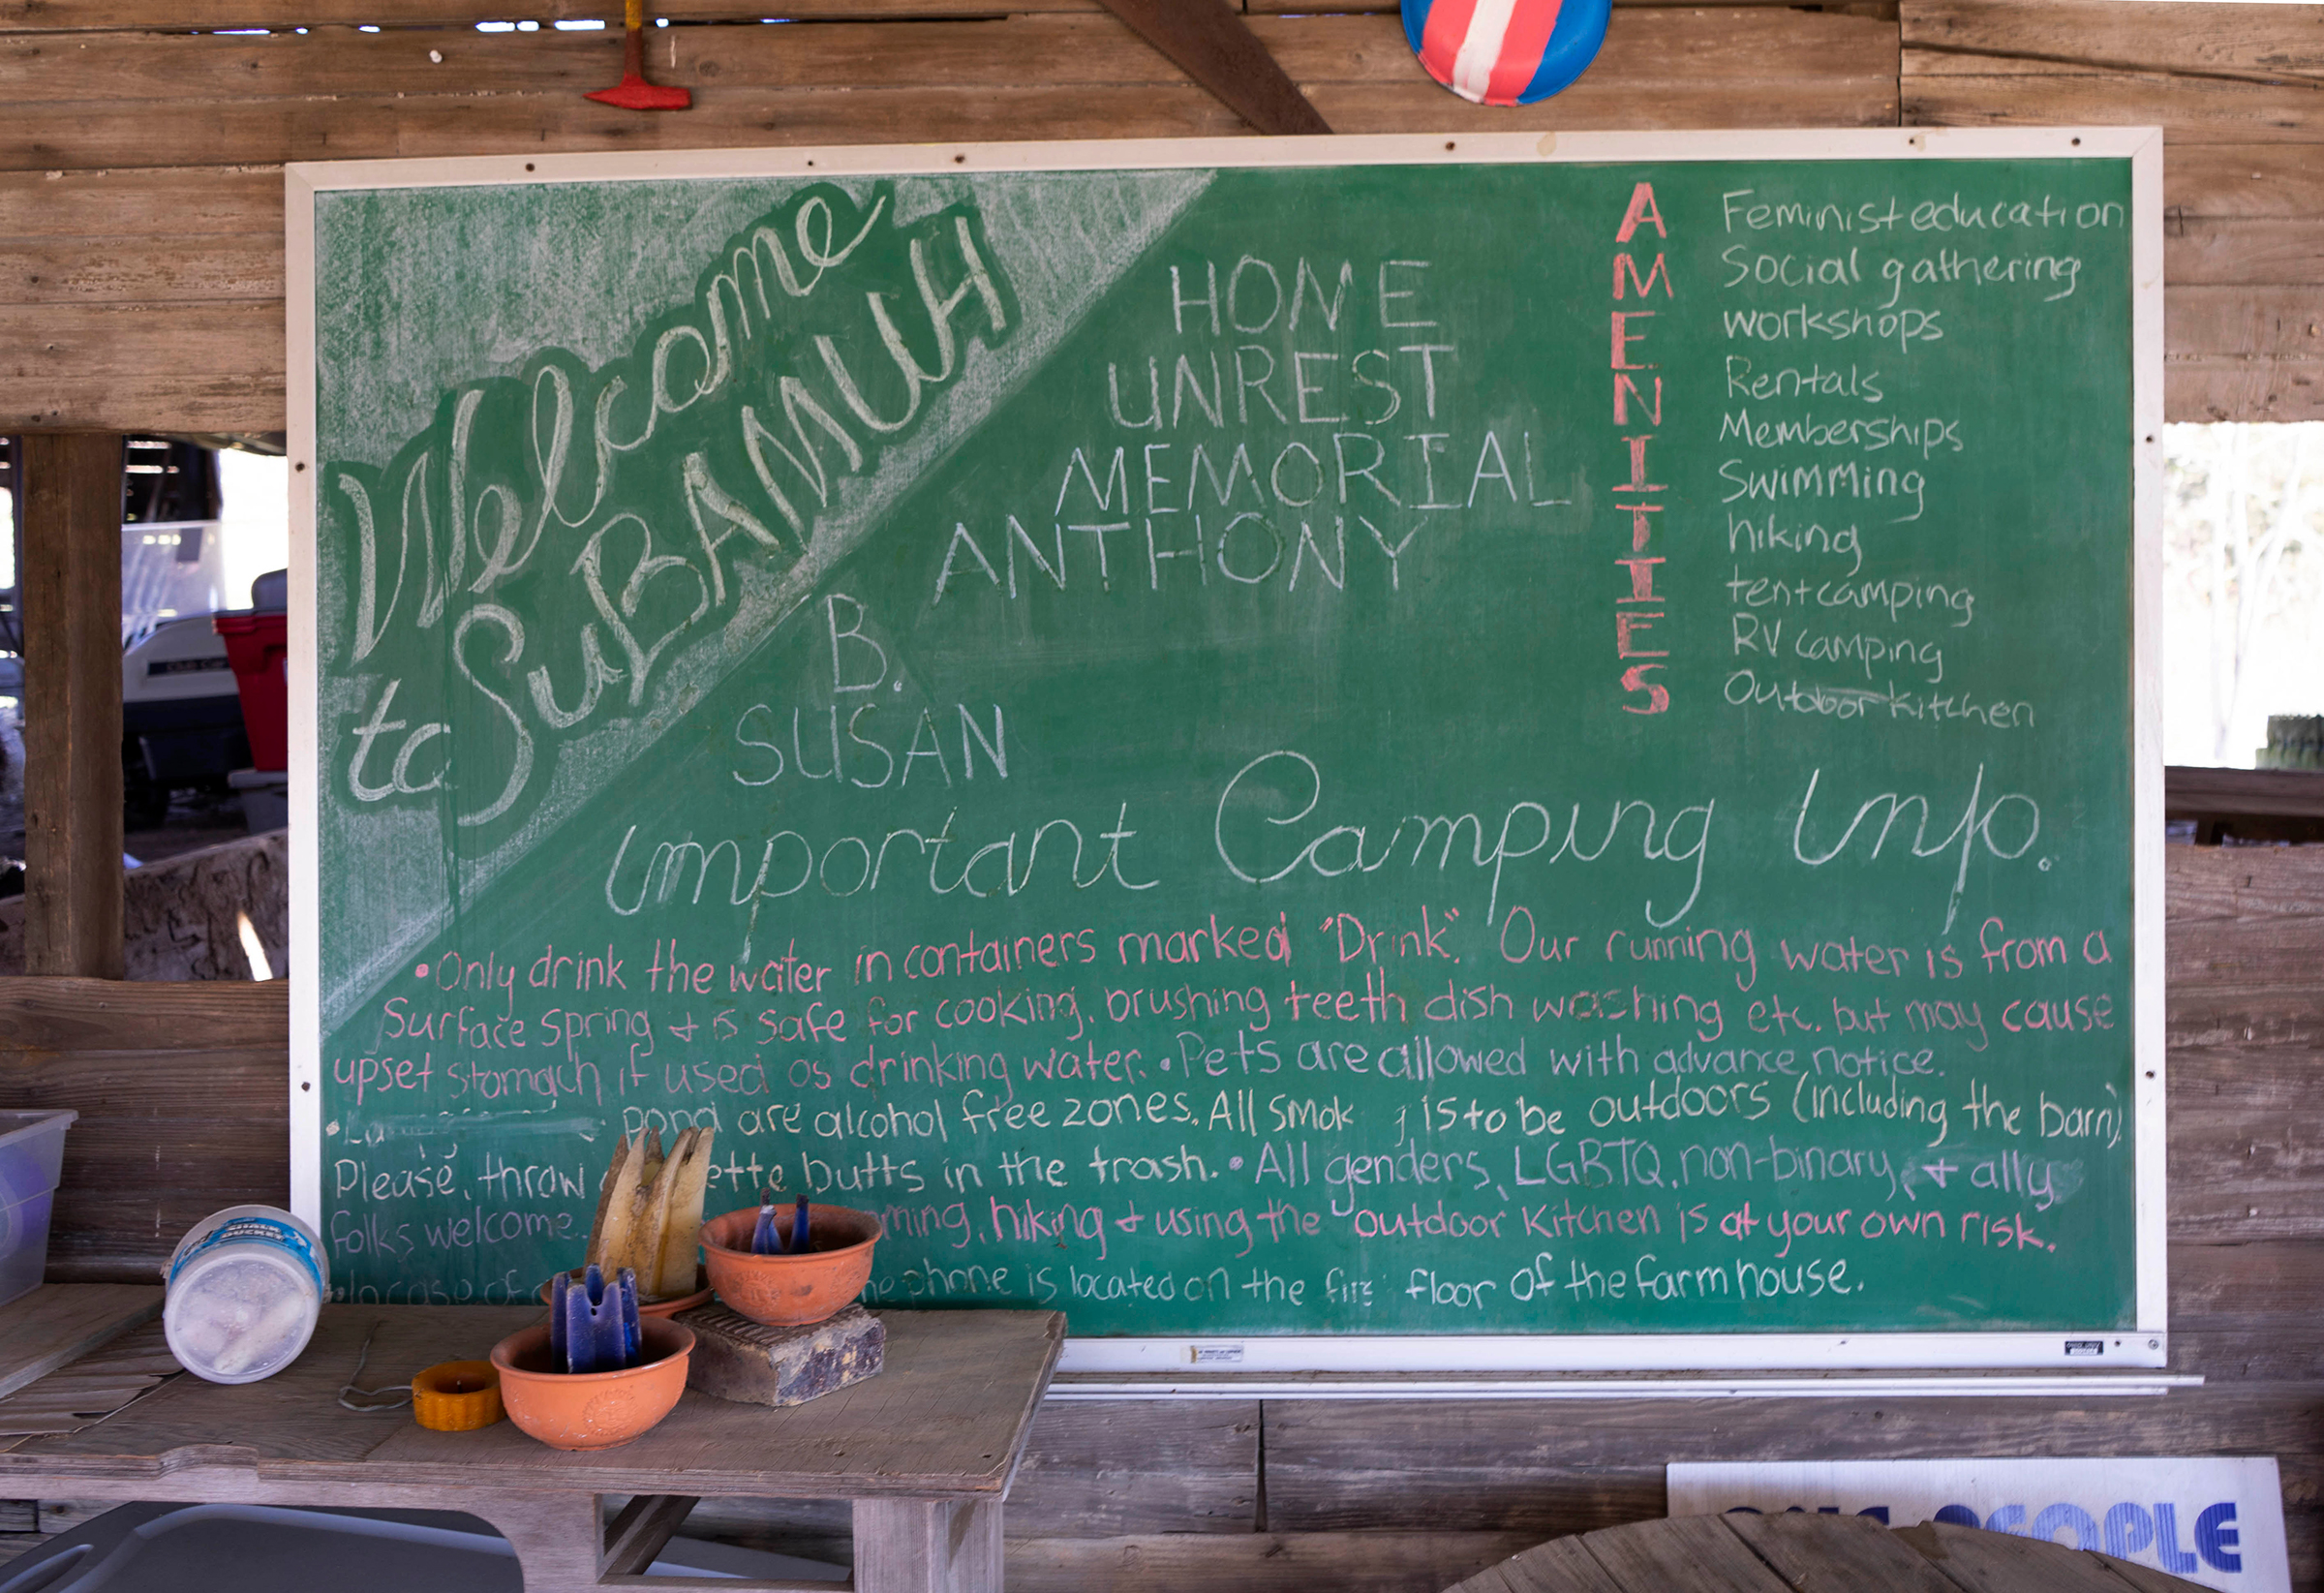 Welcome
to SuBAMUH
HOME
UNREST
MEMORIAL
ANTHONY
B.
SUSAN
AMENITIES
Feminist education
Social gathering
workshops
Rentals
Memberships
Swimming
hiking
tent camping
RV camping
Outdoor kitchen
Important Camping Info.
• Only drink the water in containers marked "Drink". Our running water is from a
Surface Spring + is safe for cooking, brushing teeth dish washing etc. but may cause
upset stomach if used as drinking water. • Pets are allowed with advance notice.
• pond are alcohol free zones. All Smok g is to be outdoors (including the barn).
Please, throw ette butts in the trash. • All genders, LGBTQ, non-binary, + ally
folks welcome. ming, hiking + using the outdoor Kitchen is at your own risk.
In case of phone is located on the floor of the farmhouse.
Club Car
CHALK
BUCKET
PEOPLE